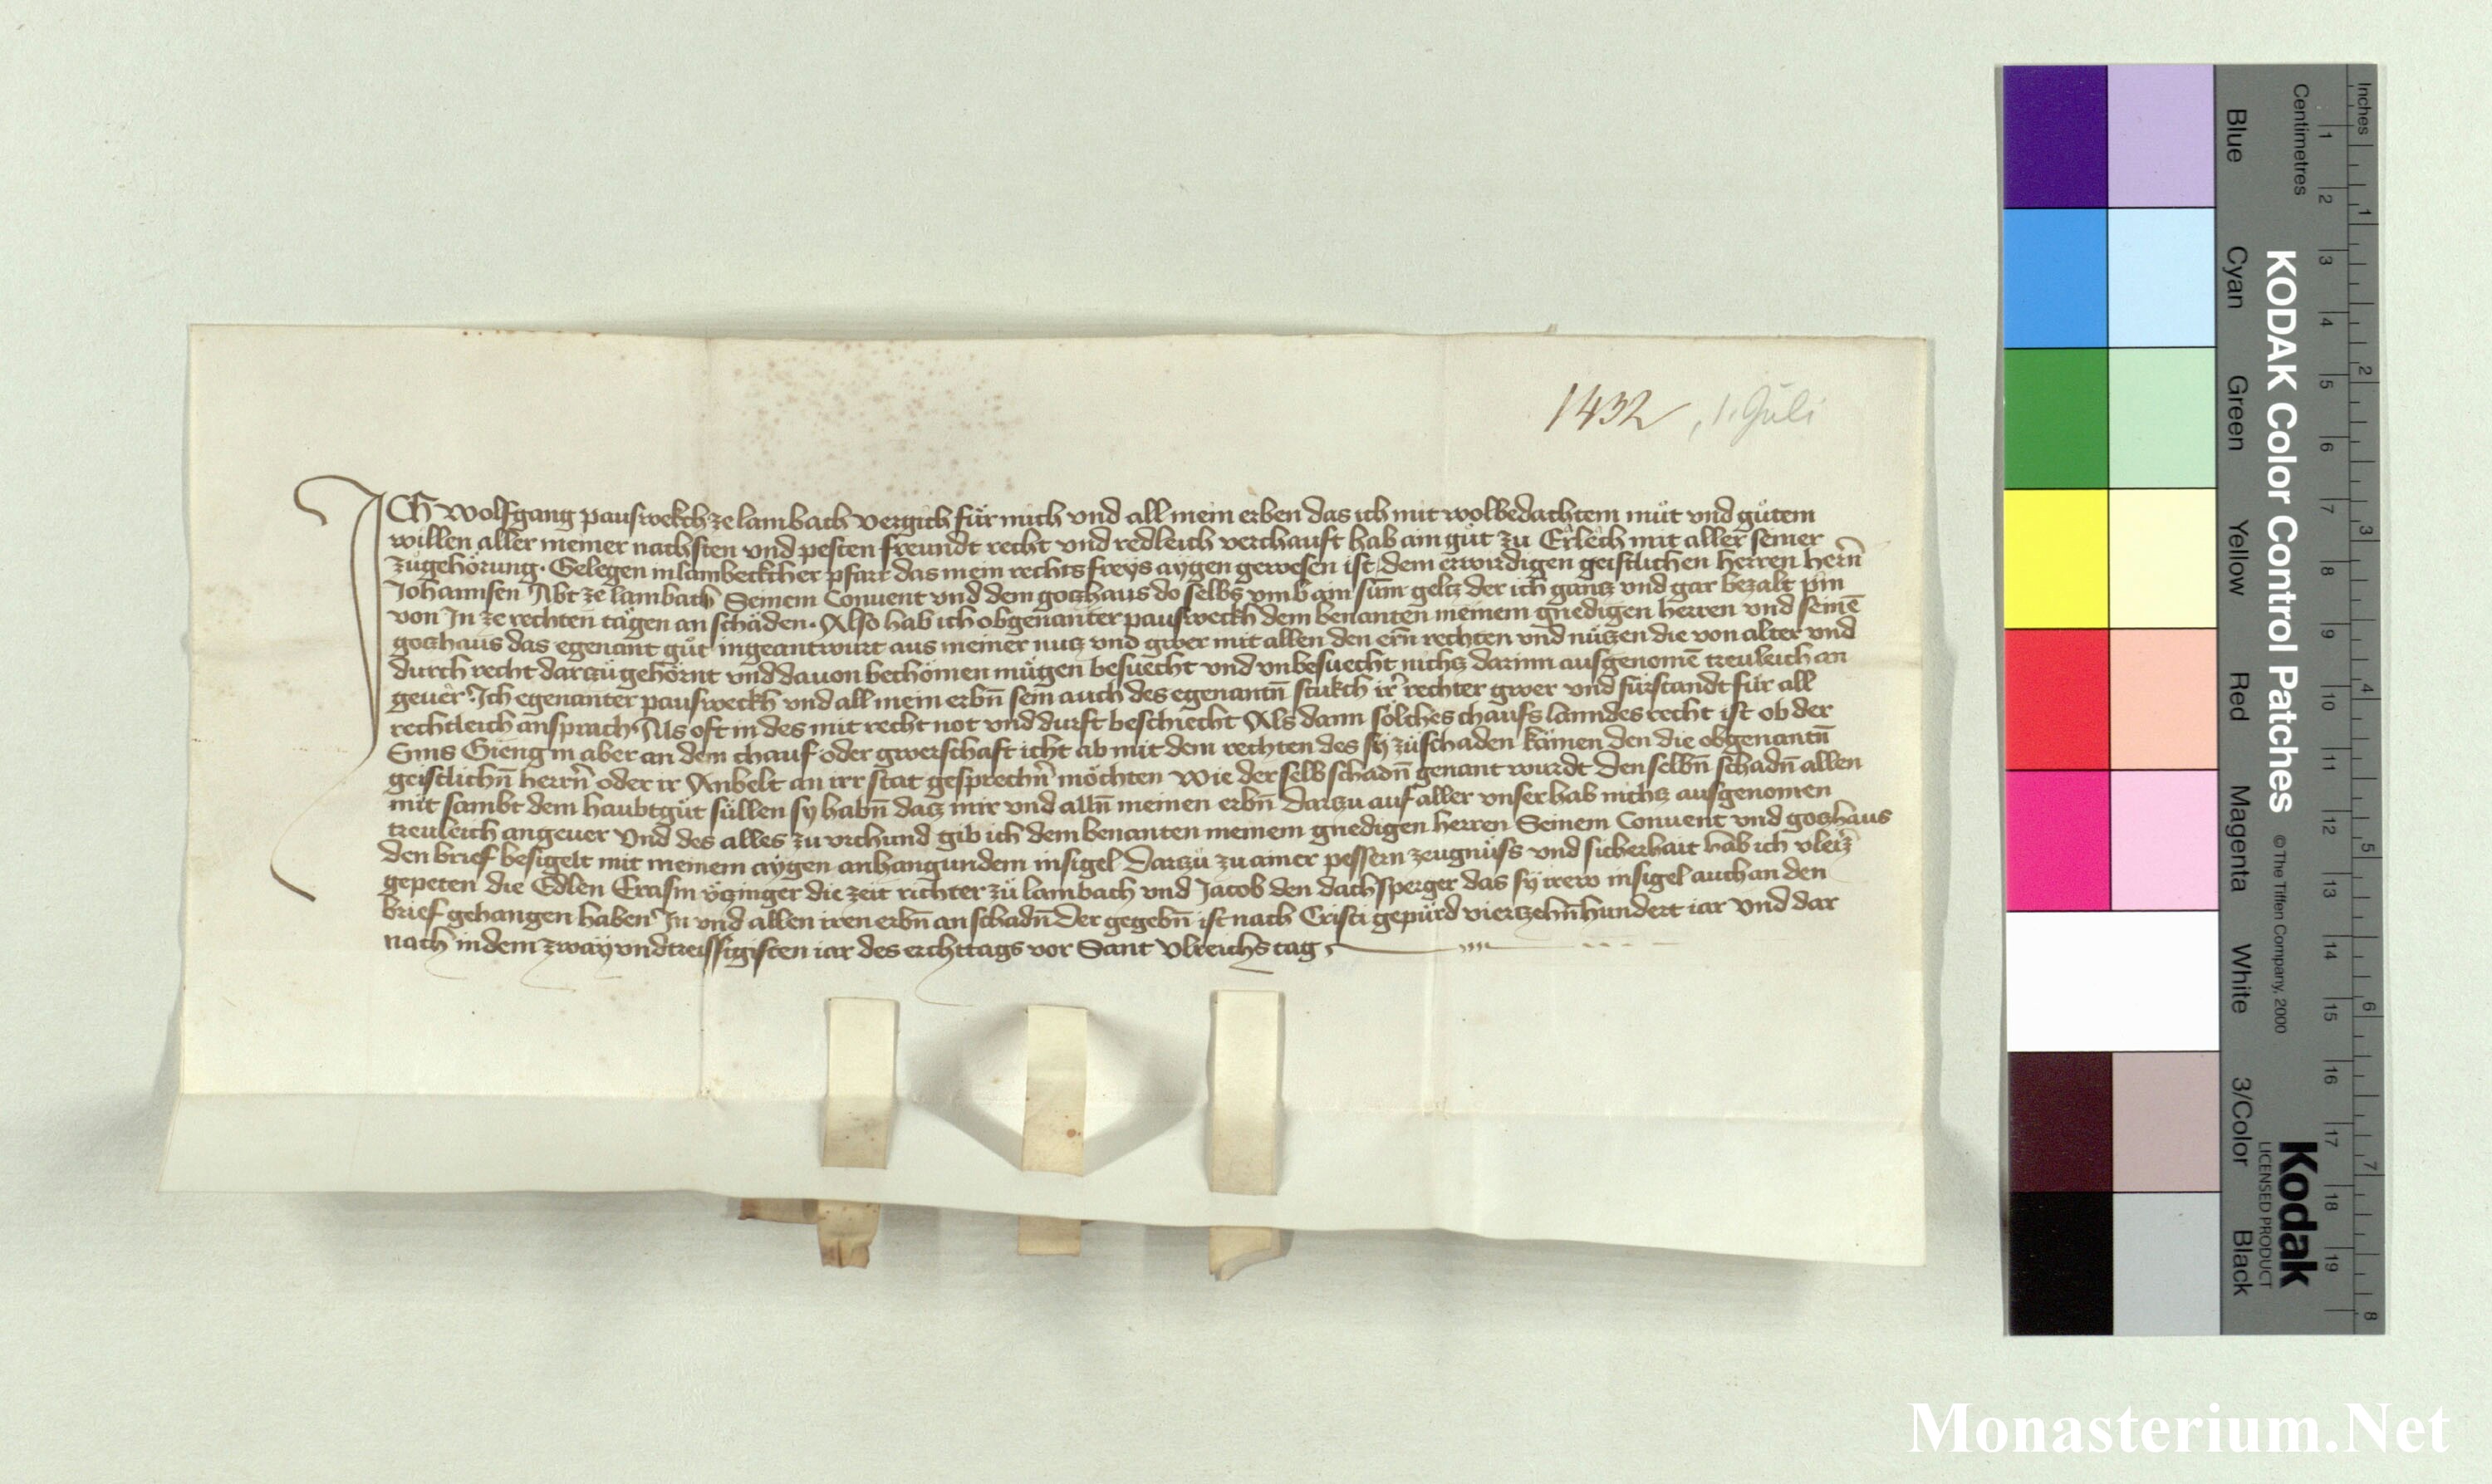 1432, 1. Juli
Ich Wolfgang pauswekch ze lambach vergich für mich vnd all mein erben das ich mit wolbedachtem müt vnd gütem
willen aller meiner nachsten vnd pesten freundt recht vnd redleich verchauft hab ain güt zu Erlech mit aller seiner
zügehörung. Gelegen in lambekcher pfarr das mein rechts freys aygen gewesen ist dem erwirdigen geistlichen herren hern̄
Johannsen Abt ze lambach Seinem Conuent vnd dem goczhaus do selbs vmb ain sum̄ geltz der ich gancz vnd gar bezalt pin
von In ze rechten tägen an schäden. Also hab ich obgenanter pausweckh dem benanten meinem gnedigen herren vnd seinē
goczhaus das egenant güt ingeantwurt aus meiner nucz vnd gwer mit allen den ern̄ rechten vnd nüczen die von alter vnd
durch recht darczü gehörnt vnd dauon bechömen mügen besuecht vnd vnbesuecht nichcz darinn ausgenomē treuleich an
geuer. Ich egenanter pausweckh vnd all mein erbn̄ sein auch des egenantn̄ stukch ir rechter gwer vnd fürstandt für all
rechtleich ansprach Als oft in des mit recht not vnd durft beschiecht Als dann sölches chaufs lanndes recht ist ob der
Enns Gieng in aber an dem chauf oder gwerschaft icht ab mit dem rechten des sy zü schaden kämen den die obgenantn̄
geistlichn̄ herrn̄ oder ir Anbelt an irr stat gesprechn̄ möchten wie der selb schadn̄ genant wurdt Den selbn̄ schadn̄ allen
mit sambt dem haubtgüt süllen sy habn̄ dacz mir vnd alln̄ meinen erbn̄ Darczu auf aller vnser hab nichcz ausgenomen
treuleich an geuer Vnd des alles zu vrchund gib ich dem benanten meinem gnedigen herren Seinem Conuent vnd goczhaus
den brief besigelt mit meinem aygen anhangundem insigel Darczü zu ainer pessern zeugnüss vnd sicherhait hab ich vleiz̄
gepeten die Edlen Erasm üczinger die zeit richter zü lambach vnd Jacob den dachsperger das sy irew insigel auch an den
brief gehangen haben In vnd allen iren erbn̄ an schadn̄ Der gegebn̄ ist nach Cristi gepürd vierczehn̄hundert iar Vnd dar
nach in dem zway vnd treissigisten iar des erchttags vor Sant Vlreichs tag
KODAK Color Control Patches
© The Tiffen Company, 2000
Kodak
LICENSED PRODUCT
Inches 1 2 3 4 5 6 7 8
Centimetres 1 2 3 4 5 6 7 8 9 10 11 12 13 14 15 16 17 18 19
Blue
Cyan
Green
Yellow
Red
Magenta
White
3/Color
Black
Monasterium.Net